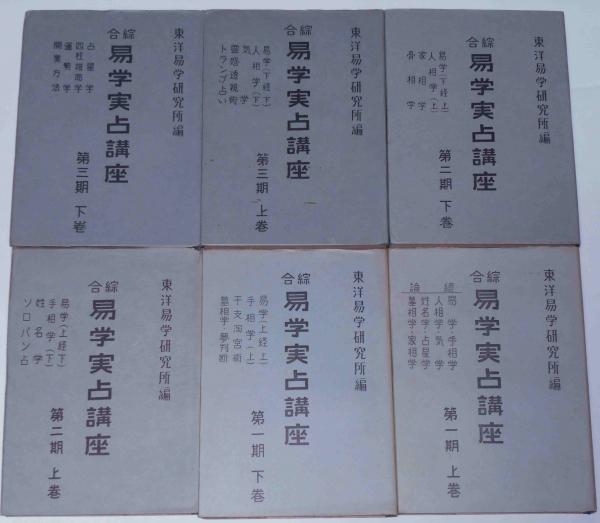 東洋易学研究所編
綜合
易学実占講座
占星学
四柱推命学
運勢学
開業方法
第三期 下巻
東洋易学研究所編
綜合
易学実占講座
易学(下経下)
人相学(下)
気学
霊感透視術
トランプ占い
第三期 上巻
東洋易学研究所編
綜合
易学実占講座
易学(下経上)
人相学(上)
家相学
骨相学
第二期 下巻
東洋易学研究所編
綜合
易学実占講座
易学(上経下)
手相学(下)
姓名学
ソロバン占
第二期 上巻
東洋易学研究所編
綜合
易学実占講座
易学(上経上)
手相学(上)
干支淘宮術
墓相学・夢判断
第一期 下巻
東洋易学研究所編
綜合
易学実占講座
総論
易学・手相学
人相学・気学
姓名学・占星学
墓相学・家相学
第一期 上巻